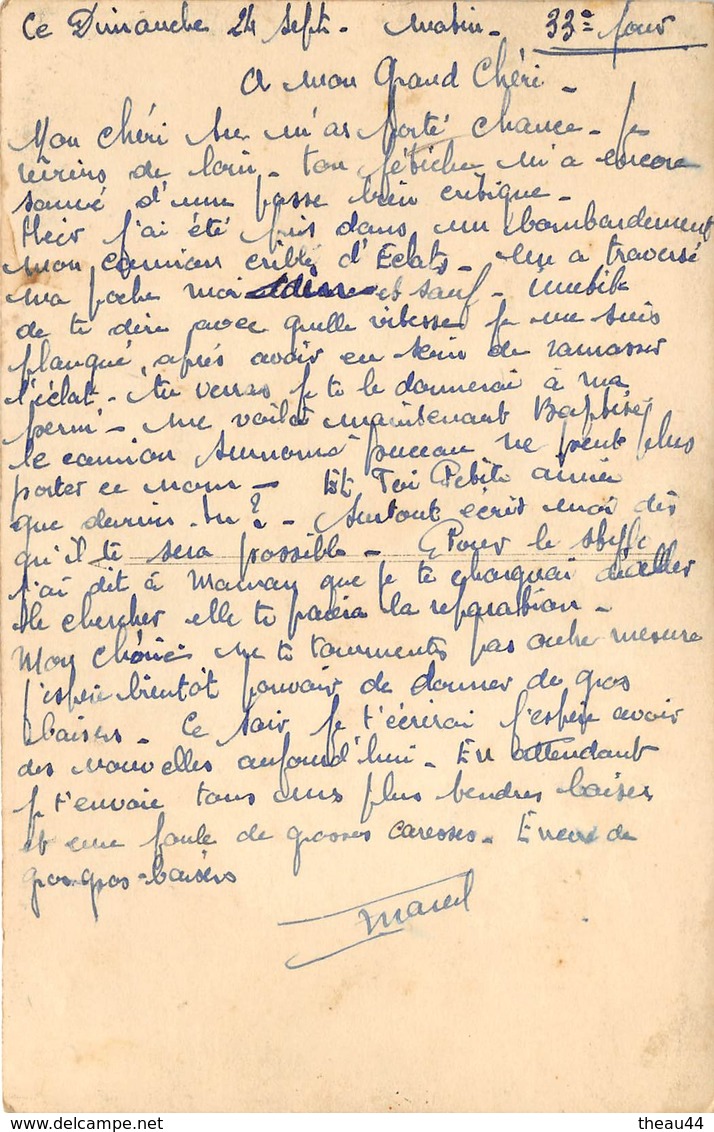 Ce Dimanche 24 Sept. Matin. 33e Jour
A mon Grand Chéri.
Mon chéri tu m'as porté chance. Je
reviens de loin. ton fétiche m'a encore
sauvé d'une passe bien critique.
Hier j'ai été pris dans un bombardement
mon camion criblé d'Eclats. Un a traversé
ma poche moi et sauf. Inutile
de te dire avec quelle vitesse je me suis
planqué, après avoir eu soin de ramasser
l'éclat. tu verras je te le donnerai à ma
perm. me voilà maintenant Baptisé
le camion surnommé puceau ne peut plus
porter ce nom. Et Toi Petite amie
que deviens-tu? Surtout écris moi dès
qu'il te sera possible. Pour le stylo
j'ai dit à Maman que je te chargeai d'aller
le chercher elle te paiera la réparation.
Mon Chérie ne te tourmentes pas outre mesure
j'espère bientôt pouvoir de donner de gros
baisers. Ce soir je t'écrirai j'espère avoir
des nouvelles aujourd'hui. En attendant
je t'envoie tous mes plus tendres baisers
et une foule de grosses caresses. Encore de
gros gros baisers
Marcel
theau44